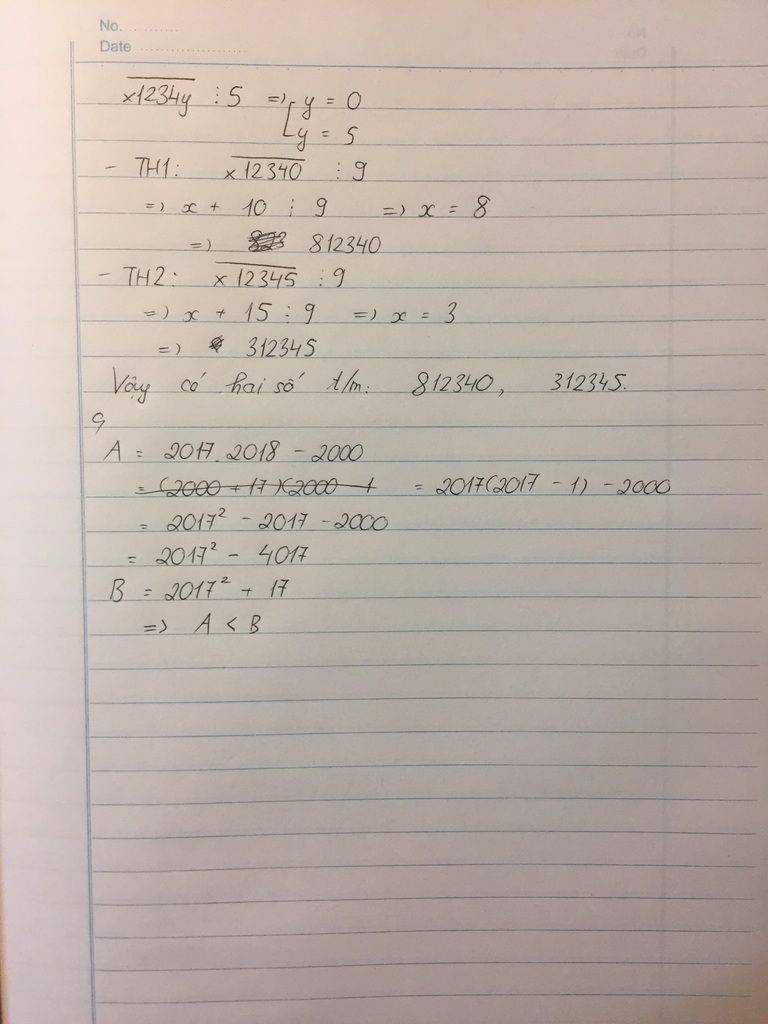 No. ...........
Date ......................
x1234y ⋮ 5 => [ y = 0
y = 5
- TH1: x12340 ⋮ 9
=> x + 10 ⋮ 9 => x = 8
=> 812340
- TH2: x12345 ⋮ 9
=> x + 15 ⋮ 9 => x = 3
=> 312345
Vậy có hai số t/m: 812340, 312345.
9
A = 2017.2018 - 2000
= (2000 + 17)(2000 - 1 = 2017(2017 - 1) - 2000
= 2017² - 2017 - 2000
= 2017² - 4017
B = 2017² + 17
=> A < B